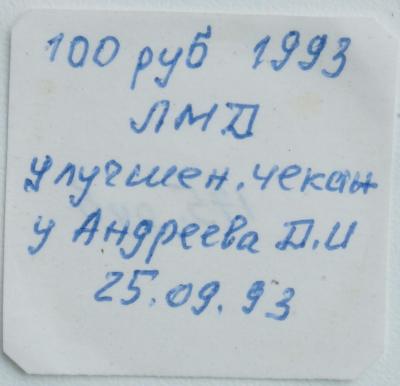 100 руб 1993
ЛМД
улучшен. чекан
у Андреева П.И
25.09.93